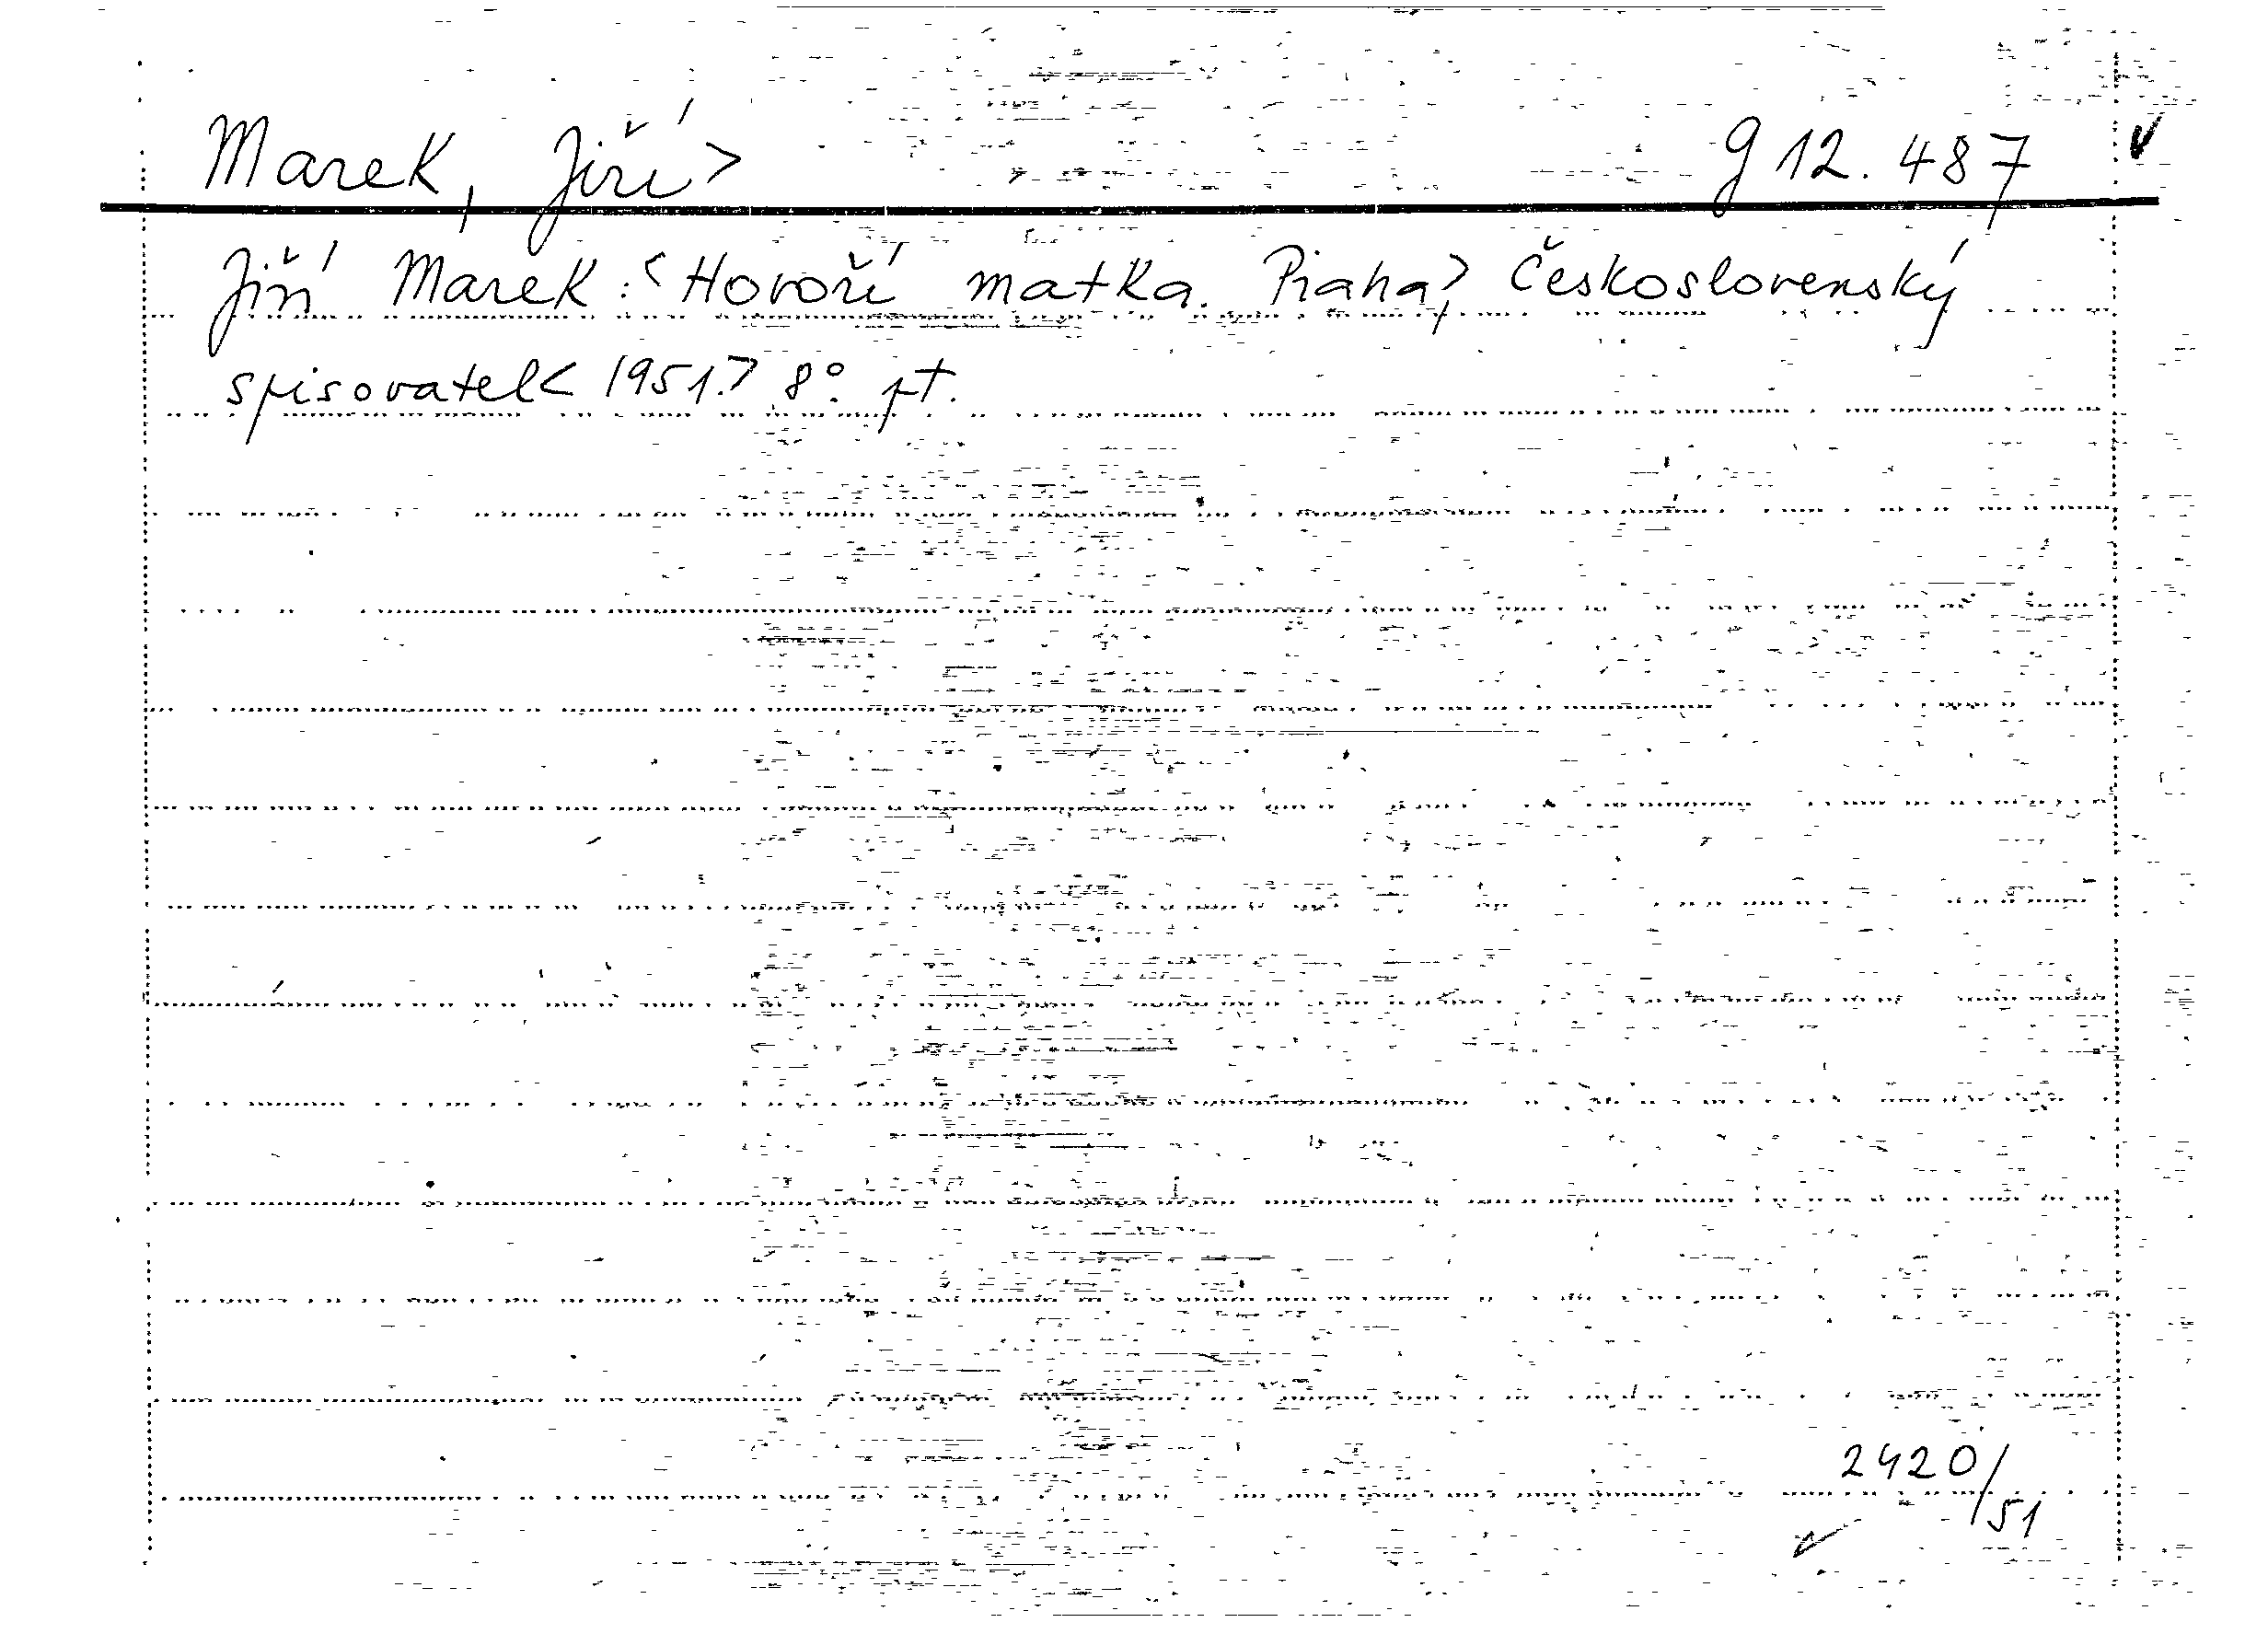 Marek, Jiří > g 12.487
Jiří Marek: < Hovoří matka. Praha, > Československý
spisovatel < 1951. > 8° pt.
2420/51